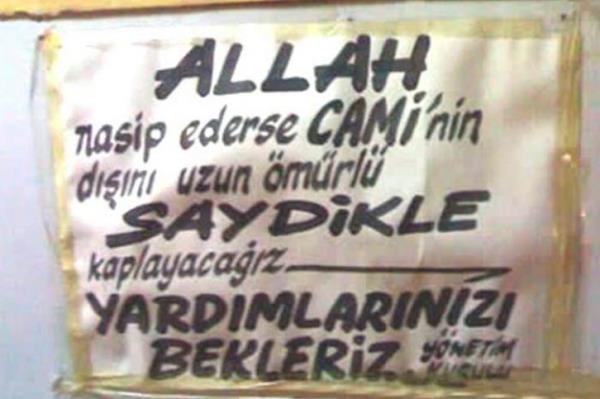 ALLAH
nasip ederse CAMİ'nin
dışını uzun ömürlü
SAYDİKLE
kaplayacağız
YARDIMLARINIZI
BEKLERİZ. YÖNETİM
KURULU